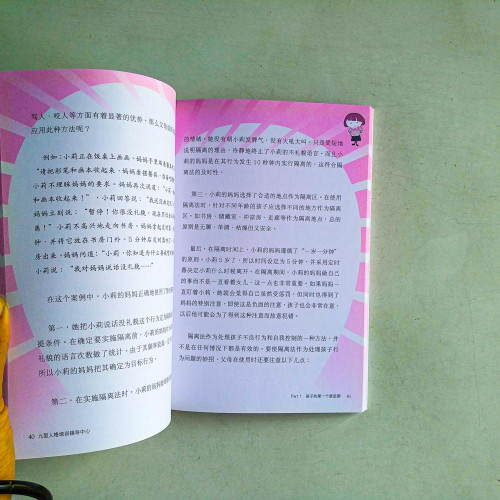 骂人、咬人等方面有着显著的优势,那么父母
应用此种方法呢?
例如:小莉正在饭桌上画画,妈妈手里端着
“请把彩笔和画本收起来,妈妈要摆餐
小莉不理睬妈妈的要求。妈妈再次说道:“小莉
和画本收起来!”小莉回答说:“我
妈妈立刻说:“暂停!你很没礼貌,现在
离!”小莉不高兴地走向书房。妈妈拿
钟,并将它放在书房门外。5分钟后定时
房出来。妈妈问道:“小莉,你知道为什么
小莉说:“我对妈妈说话没礼貌……”
在这个案例中,小莉的妈妈正确地使用了
第一,她把小莉说话没礼貌这个行为
提条件。在确定要实施隔离前,小莉的妈妈
礼貌的语言次数做了统计,由于其频率
所以小莉的妈妈把其确定为目标行为。
第二,在实施隔离法时,小莉的妈妈
40 九型人格培训辅导中心
的情绪,她没有朝小莉发脾气,没有大吼大叫,只是要短地
说明隔离的理由,冷静地终止了小莉的不礼貌语言,而且小
莉的妈妈是在其行为发生10秒钟内实行隔离的,这符合隔
离法的及时性。
第三,小莉的妈妈选择了合适的地点作为隔离区。在使用
隔离法时,针对不同年龄的孩子应选择不同的地方作为隔离
区,如书房、储藏室、冲凉房、走廊等作为隔离地点,总的
原则是无聊、单调、枯燥但又安全。
最后,在隔离时间上,小莉的妈妈遵循了“一岁一分钟”
的原则。小莉5岁了,所以时间设定为5分钟,并采用定时
器决定小莉什么时候离开。在隔离期间,小莉的妈妈做自己
的事而不是一直看着女儿,这一点也非常重要。如果妈妈一
直盯着小莉,她就会觉得自己虽然受惩罚,但同时也得到了
妈妈的特别注意,即使这是负面的注意,孩子也会非常在意,
以后他可能会为了得到这种注意而故意犯错。
隔离法作为处理孩子不良行为和自我控制的一种方法,并
不是在任何情况下都是有效的。要使隔离法作为处理孩子行
为问题的妙招,父母在使用时还要注意以下几点:
Part 1 孩子的第一个叛逆期 41